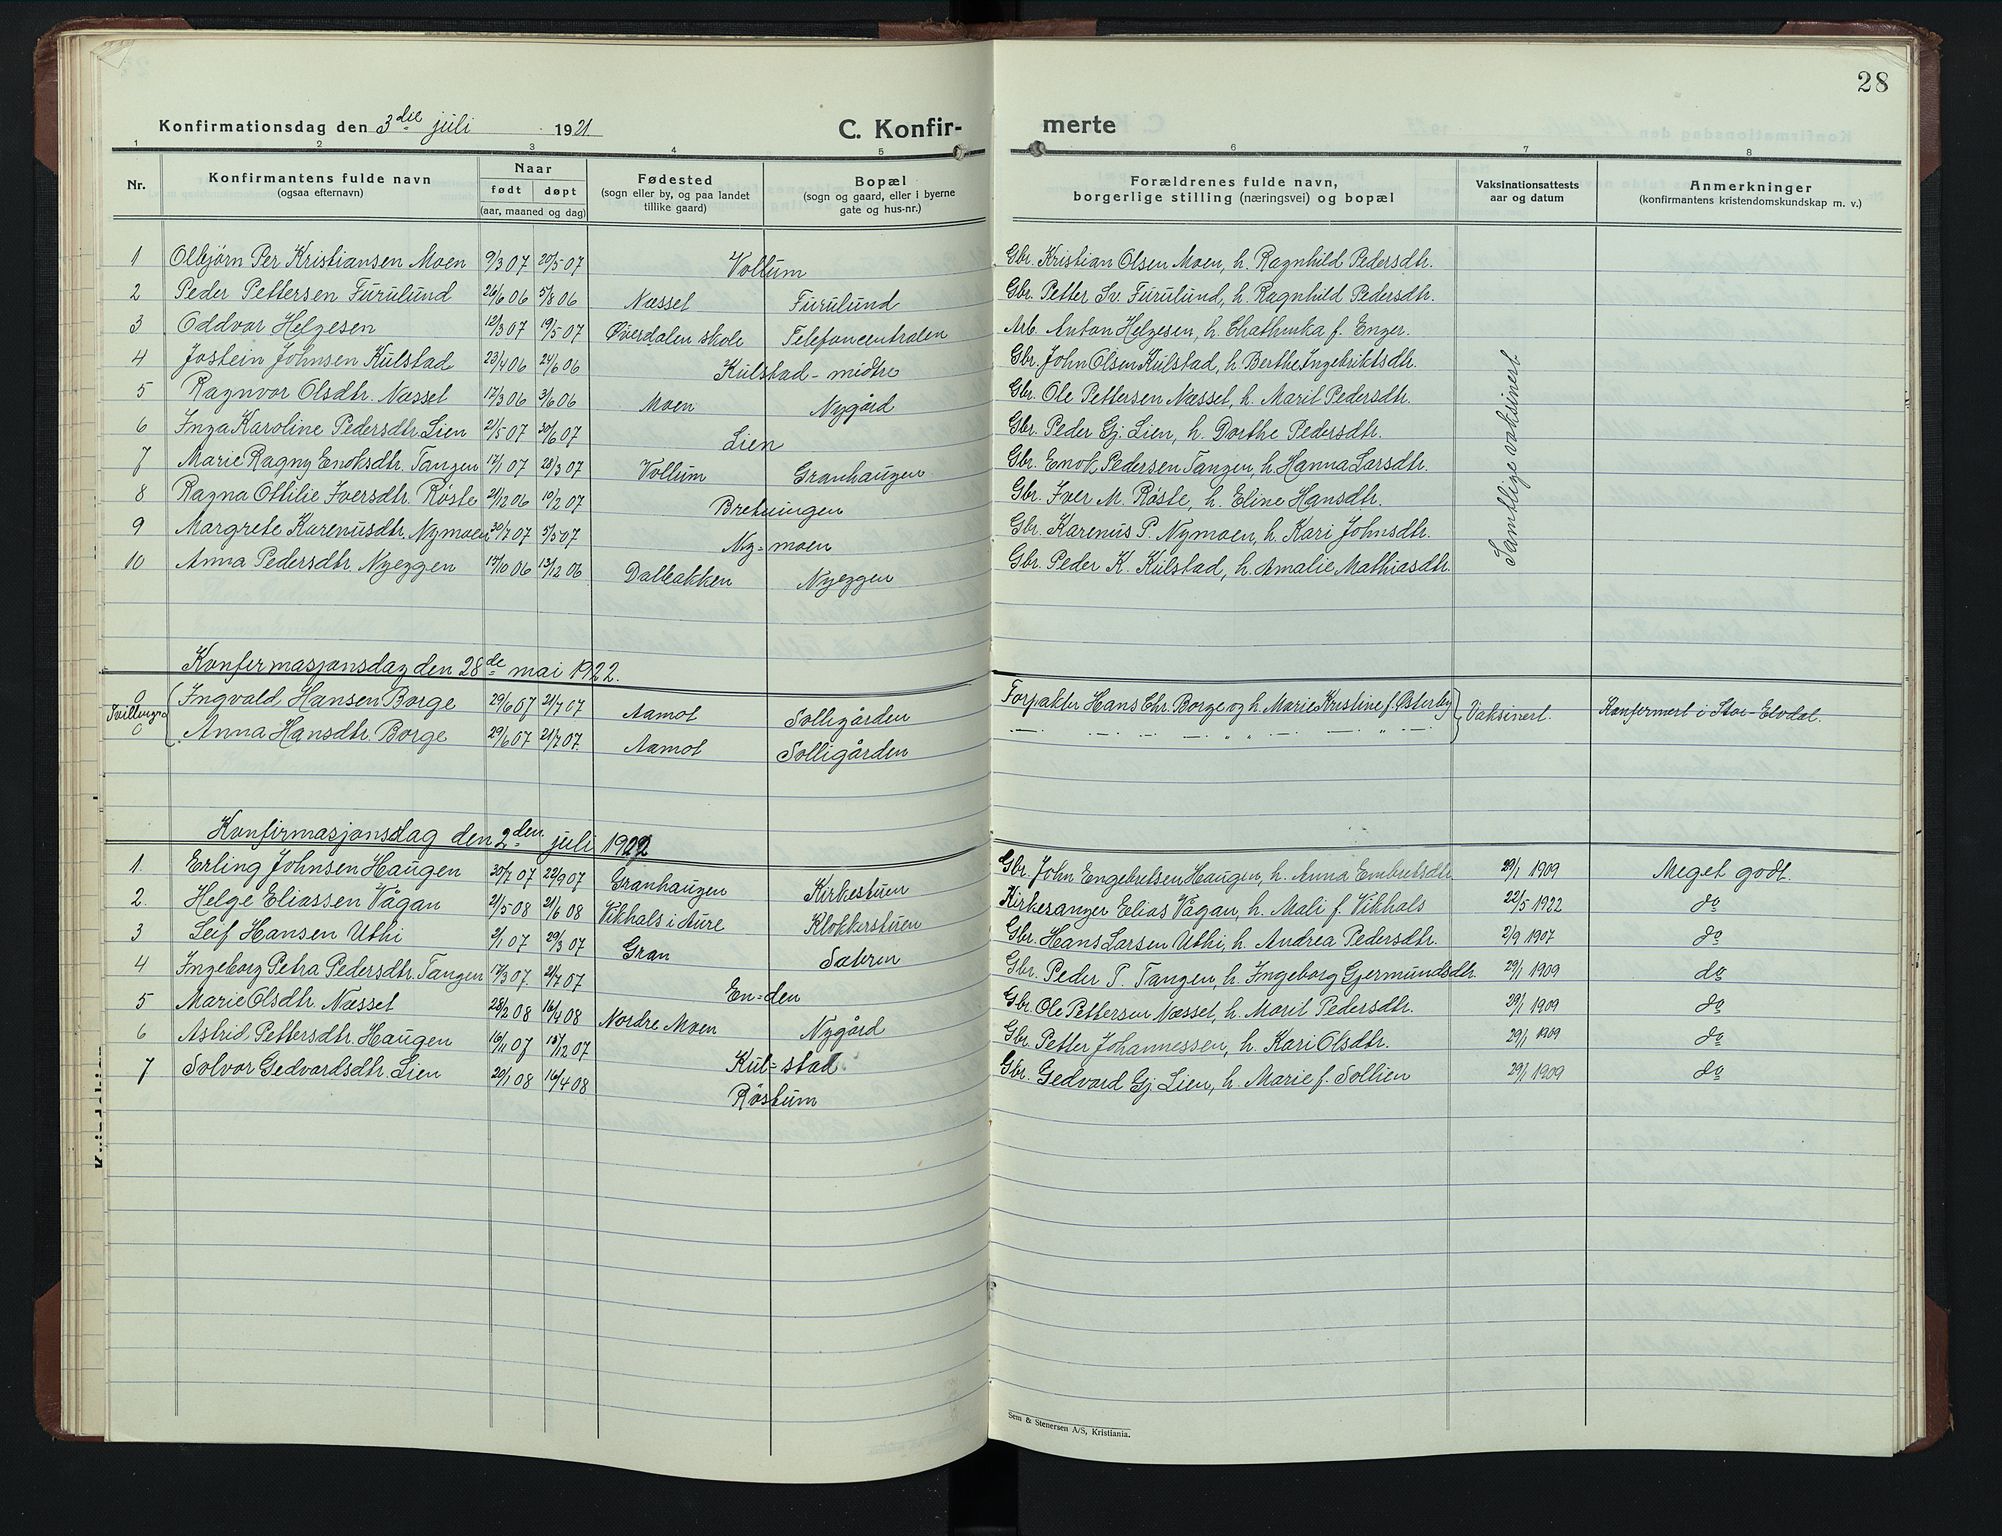 28
Konfirmationsdag den 3die juli 1921 C. Konfir- merte
1 2 3 4 5 6 7 8
Nr. Konfirmantens fulde navn (ogsaa efternavn) Naar født døpt (aar, maaned og dag) Fødested (sogn eller by, og paa landet tillike gaard) Bopæl (sogn og gaard, eller i byerne gate og hus-nr.) Forældrenes fulde navn, borgerlige stilling (næringsvei) og bopæl Vaksinationsattests aar og datum Anmerkninger (konfirmantens kristendomskundskap m. v.)
1 Olbjørn Per Kristiansen Moen 9/3 07 20/5 07 Vollum Gbr. Kristian Olsen Moen, h. Ragnhild Pedersdtr.
2 Peder Pettersen Furulund 26/6 06 5/8 06 Næsset Furulund Gbr. Petter Sv. Furulund, h. Ragnhild Pedersdtr.
3 Oddvar Helgesen 12/3 07 19/5 07 Øverdalen skole Telefoncentralen Arb. Anton Helgesen, h. Chathinka f. Enger.
4 Jostein Johnsen Kulstad 23/4 06 24/6 06 Kulstad - midtre Gbr. John Olsen Kulstad, h. Berthe Ingebriktsdtr.
5 Ragnvor Olsdtr. Næsset 17/3 06 3/6 06 Moen Nygård Gbr. Ole Pettersen Næsset, h. Marit Pedersdtr.
6 Inga Karoline Pedersdtr. Lien 21/5 07 30/6 07 Lien Gbr. Peder Gj. Lien, h. Dorthe Pedersdtr.
7 Marie Ragny Enoksdtr. Tangen 17/1 07 28/3 07 Vollum Granhaugen Gbr. Enok Pedersen Tangen, h. Hanna Larsdtr.
8 Ragna Ottilie Iversdtr. Røste 21/12 06 10/2 07 Bretningen Gbr. Iver M. Røste, h. Eline Hansdtr.
9 Margrete Karenusdtr. Nymoen 30/7 07 5/5 07 Ny=moen Gbr. Karenus P. Nymoen, h. Kari Johnsdtr.
10 Anna Pedersdtr. Nyeggen 17/10 06 13/12 06 Dalbakken Nyeggen Gbr. Peder K. Kulstad, h. Amalie Mathiasdtr.
Samtlige vaksinert.
Konfirmasjonsdag den 28de mai 1922.
Tvillinger Ingvald Hansen Borge 29/6 07 21/7 07 Aamot Solligården Forpakter Hans Chr. Borge og h. Marie Kristine f. Østerby Vaksinert. Konfirmert i Stor-Elvdal.
Anna Hansdtr. Borge 29/6 07 21/7 07 Aamot Solligården — " —
Konfirmasjonsdag den 2den juli 1922
1. Erling Johnsen Haugen 30/7 07 22/9 07 Granhaugen Kirkestuen Gbr. John Engebretsen Haugen, h. Anna Embretsdtr 29/1 1909 Meget godt.
2. Helge Eliassen Vågan 21/5 08 21/6 08 Vikhals i Aure Klokkerstuen Kirkesanger Elias Vågan, h. Mali f. Vikhals 22/5 1922 do
3 Leif Hansen Uthi 2/1 07 29/3 07 Gran Sætren Gbr. Hans Larsen Uthi, h. Andrea Pedersdtr. 2/9 1907 do
4 Ingeborg Petra Pedersdtr. Tangen 17/3 07. 21/7 07 En=den Gbr. Peder T. Tangen, h. Ingeborg Gjermundsdtr. 29/1 1909 do
5 Marie Olsdtr. Næsset 28/2 08 16/4 08 Nordre Moen Nygård Gbr. Ole Pettersen Næsset, h. Marit Pedersdtr. 29/1 1909 do
6 Astrid Pettersdtr. Haugen 16/11 07 15/12 07 Kul=stad Gbr. Petter Johannessen, h. Kari Olsdtr. 29/1 1909 do
7 Solvor Gedvardsdtr. Lien 20/1 08 16/4 08 Røstum Gbr. Gedvard Gj. Lien, h. Marie f. Sollien 29/1 1909 do
Sem & Stenersen A/S, Kristiania.